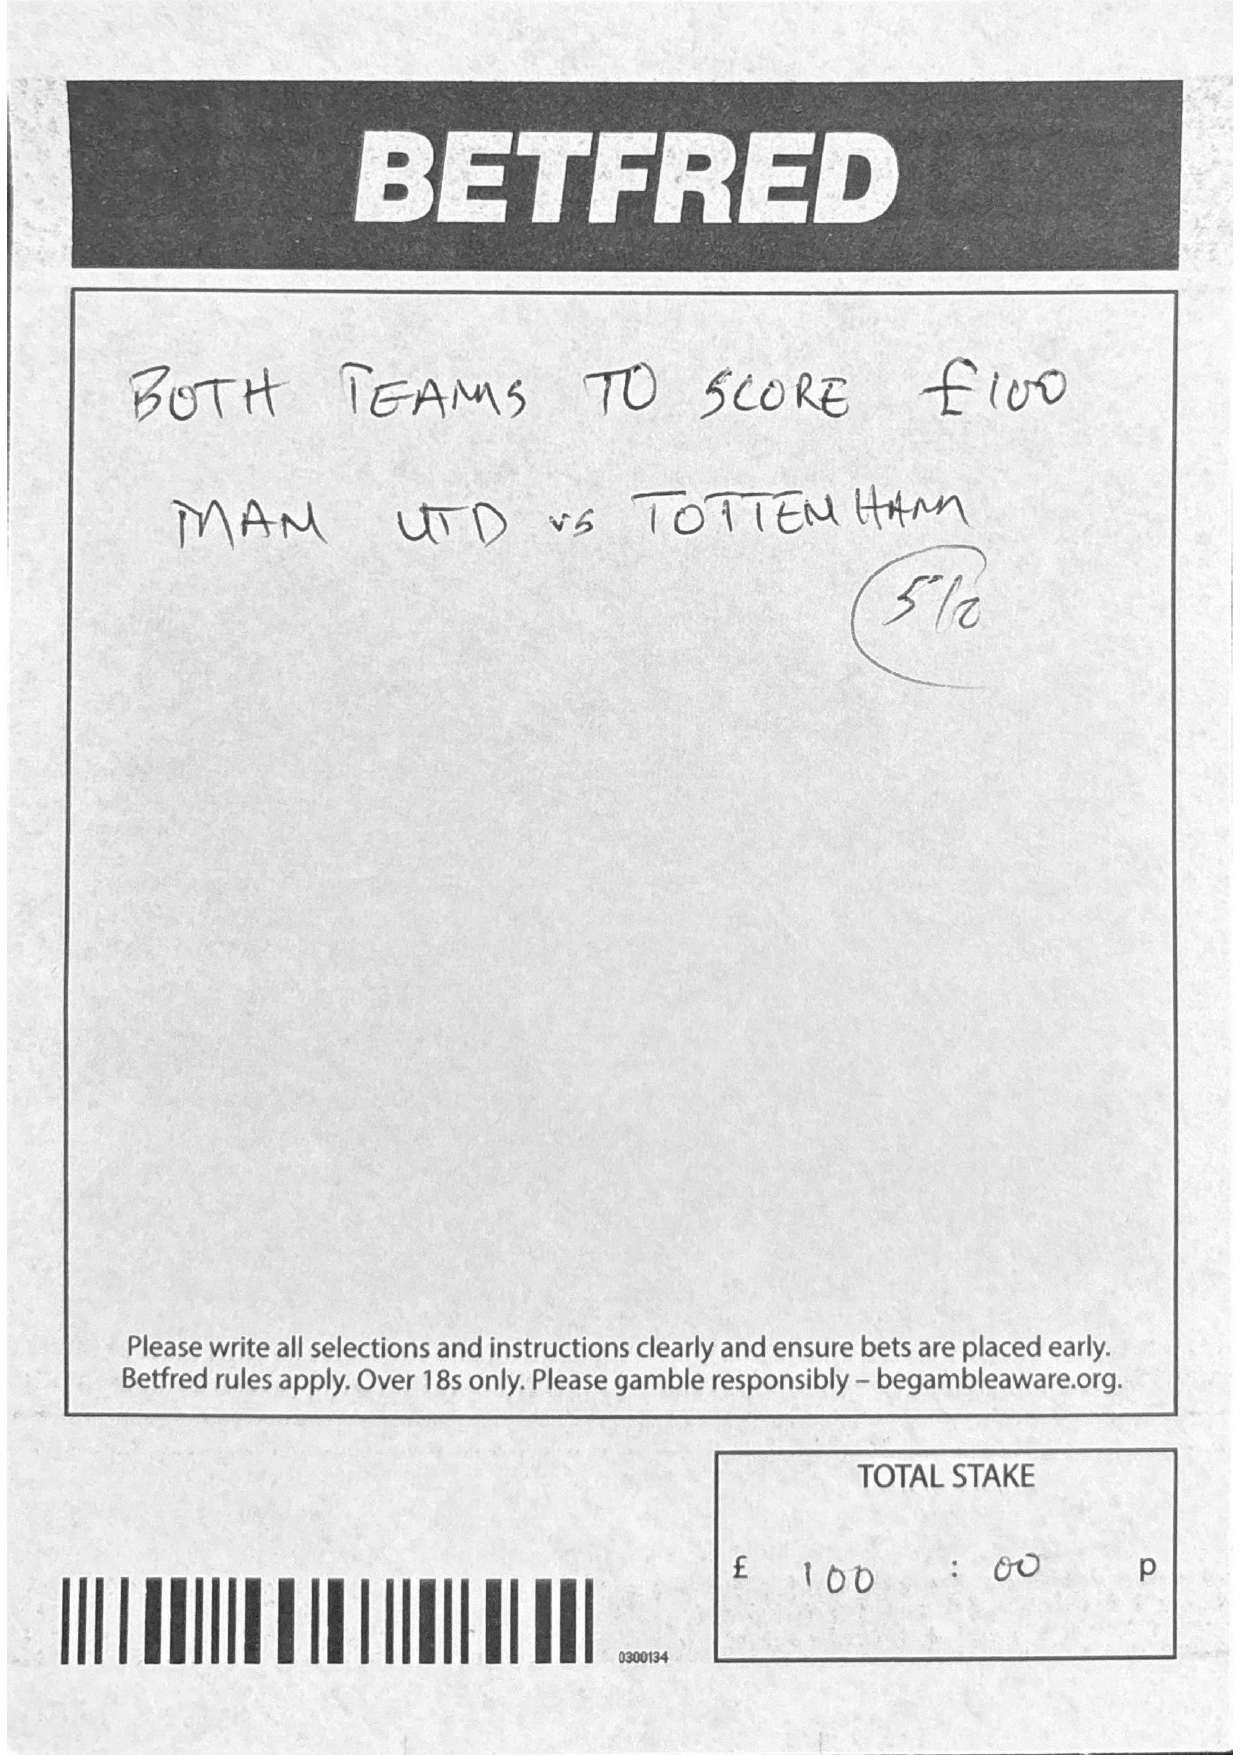 BETFRED
BOTH TEAMS TO SCORE £100
MAN UTD vs TOTTENHAM
5/2
Please write all selections and instructions clearly and ensure bets are placed early.
Betfred rules apply. Over 18s only. Please gamble responsibly – begambleaware.org.
TOTAL STAKE
£ 100 : 00 p
0300134